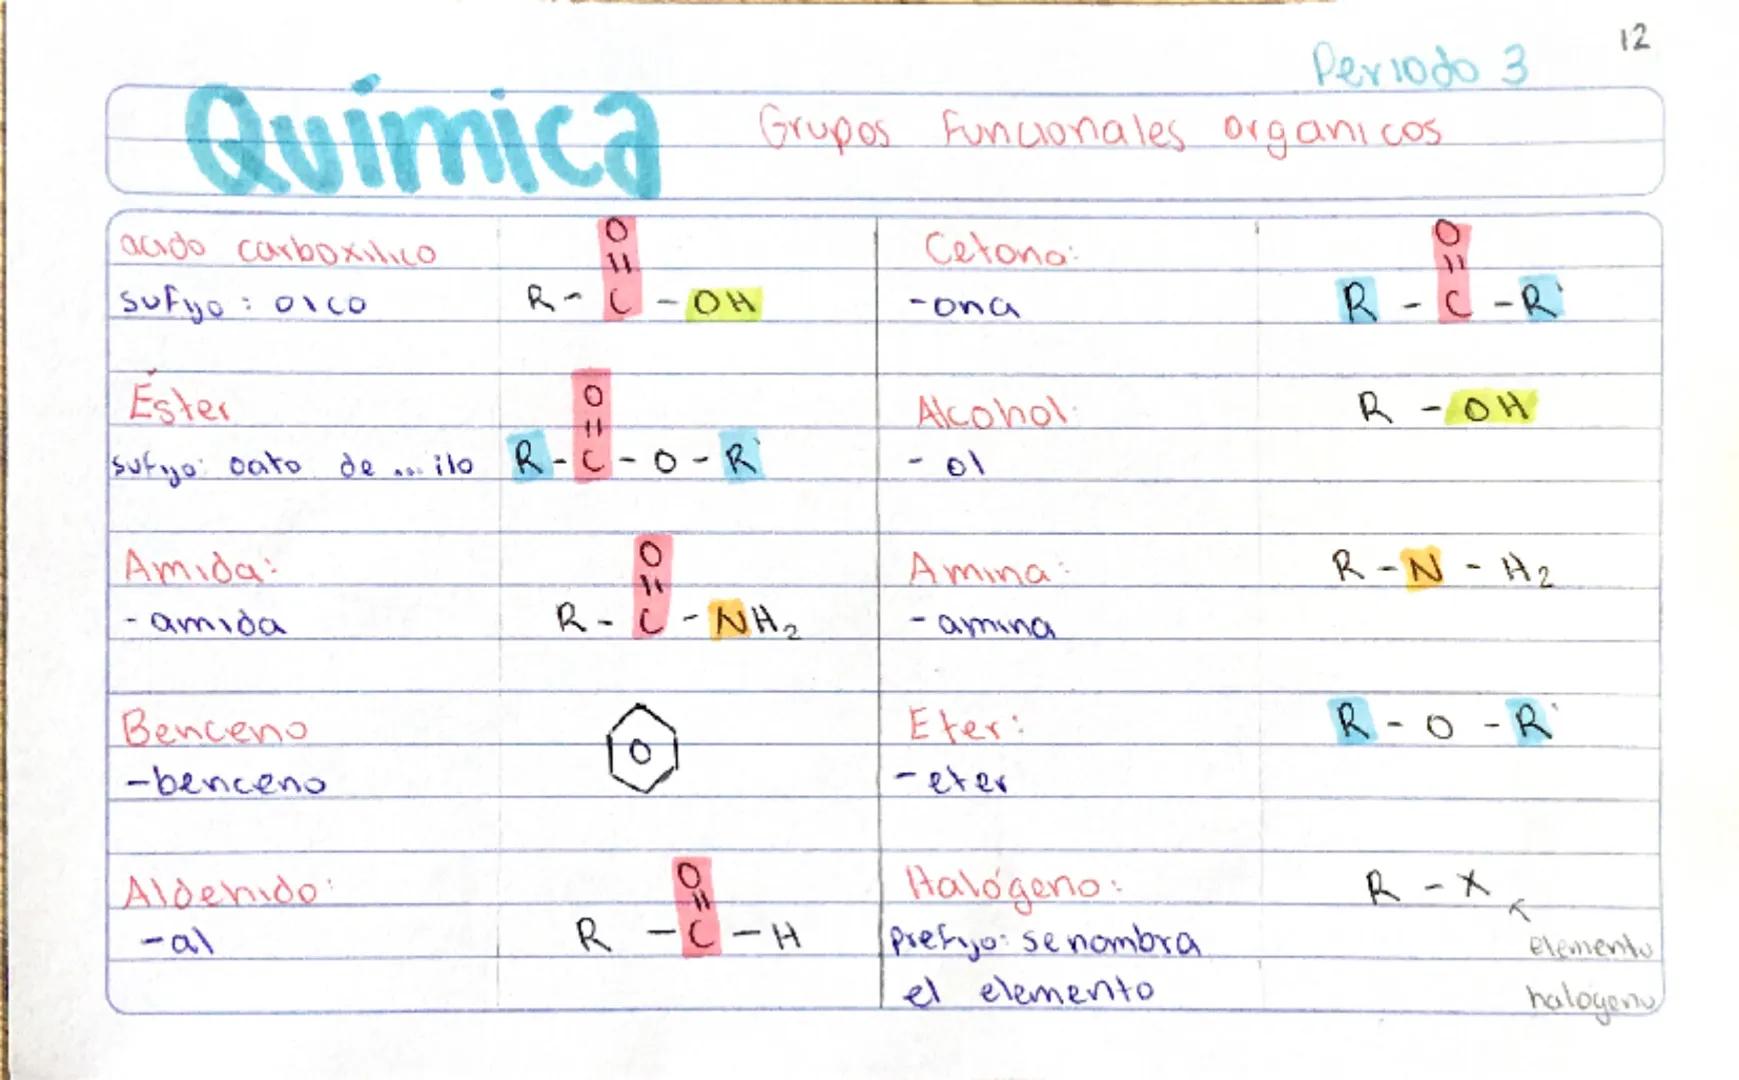 12
Periodo 3
Química
Grupos Funcionales organicos
acido carboxilico
sufijo: oico
O
||
R - C - OH
Cetona:
-ona
O
||
R - C - R'
Éster
sufijo: oato de ... ilo
O
||
R - C - O - R'
Alcohol:
- ol
R - OH
Amida:
- amida
O
||
R - C - NH₂
Amina:
- amina
R - N - H₂
Benceno
-benceno
Eter:
-eter
R - O - R'
Aldehido:
-al
O
||
R - C - H
Halógeno:
prefijo: se nombra
el elemento
R - X
elemento
halogeno